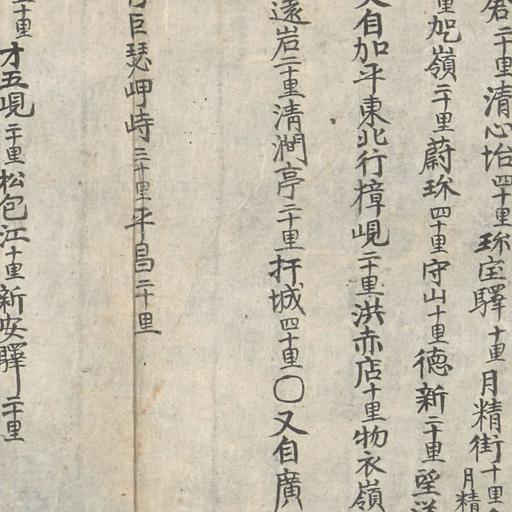 君二十里清心坮四十里珎宝驛十里月精街十里
月精
里尨嶺二十里蔚珎四十里守山十里德新二十里望洋
又自加平東北行樟峴二十里洪赤店十里物衣嶺
遠岩二十里清澗亭二十里扞城四十里〇又自廣
巨瑟岬峙三十里平昌二十里
二十里才五峴二十里松包江十里新安驛二十里